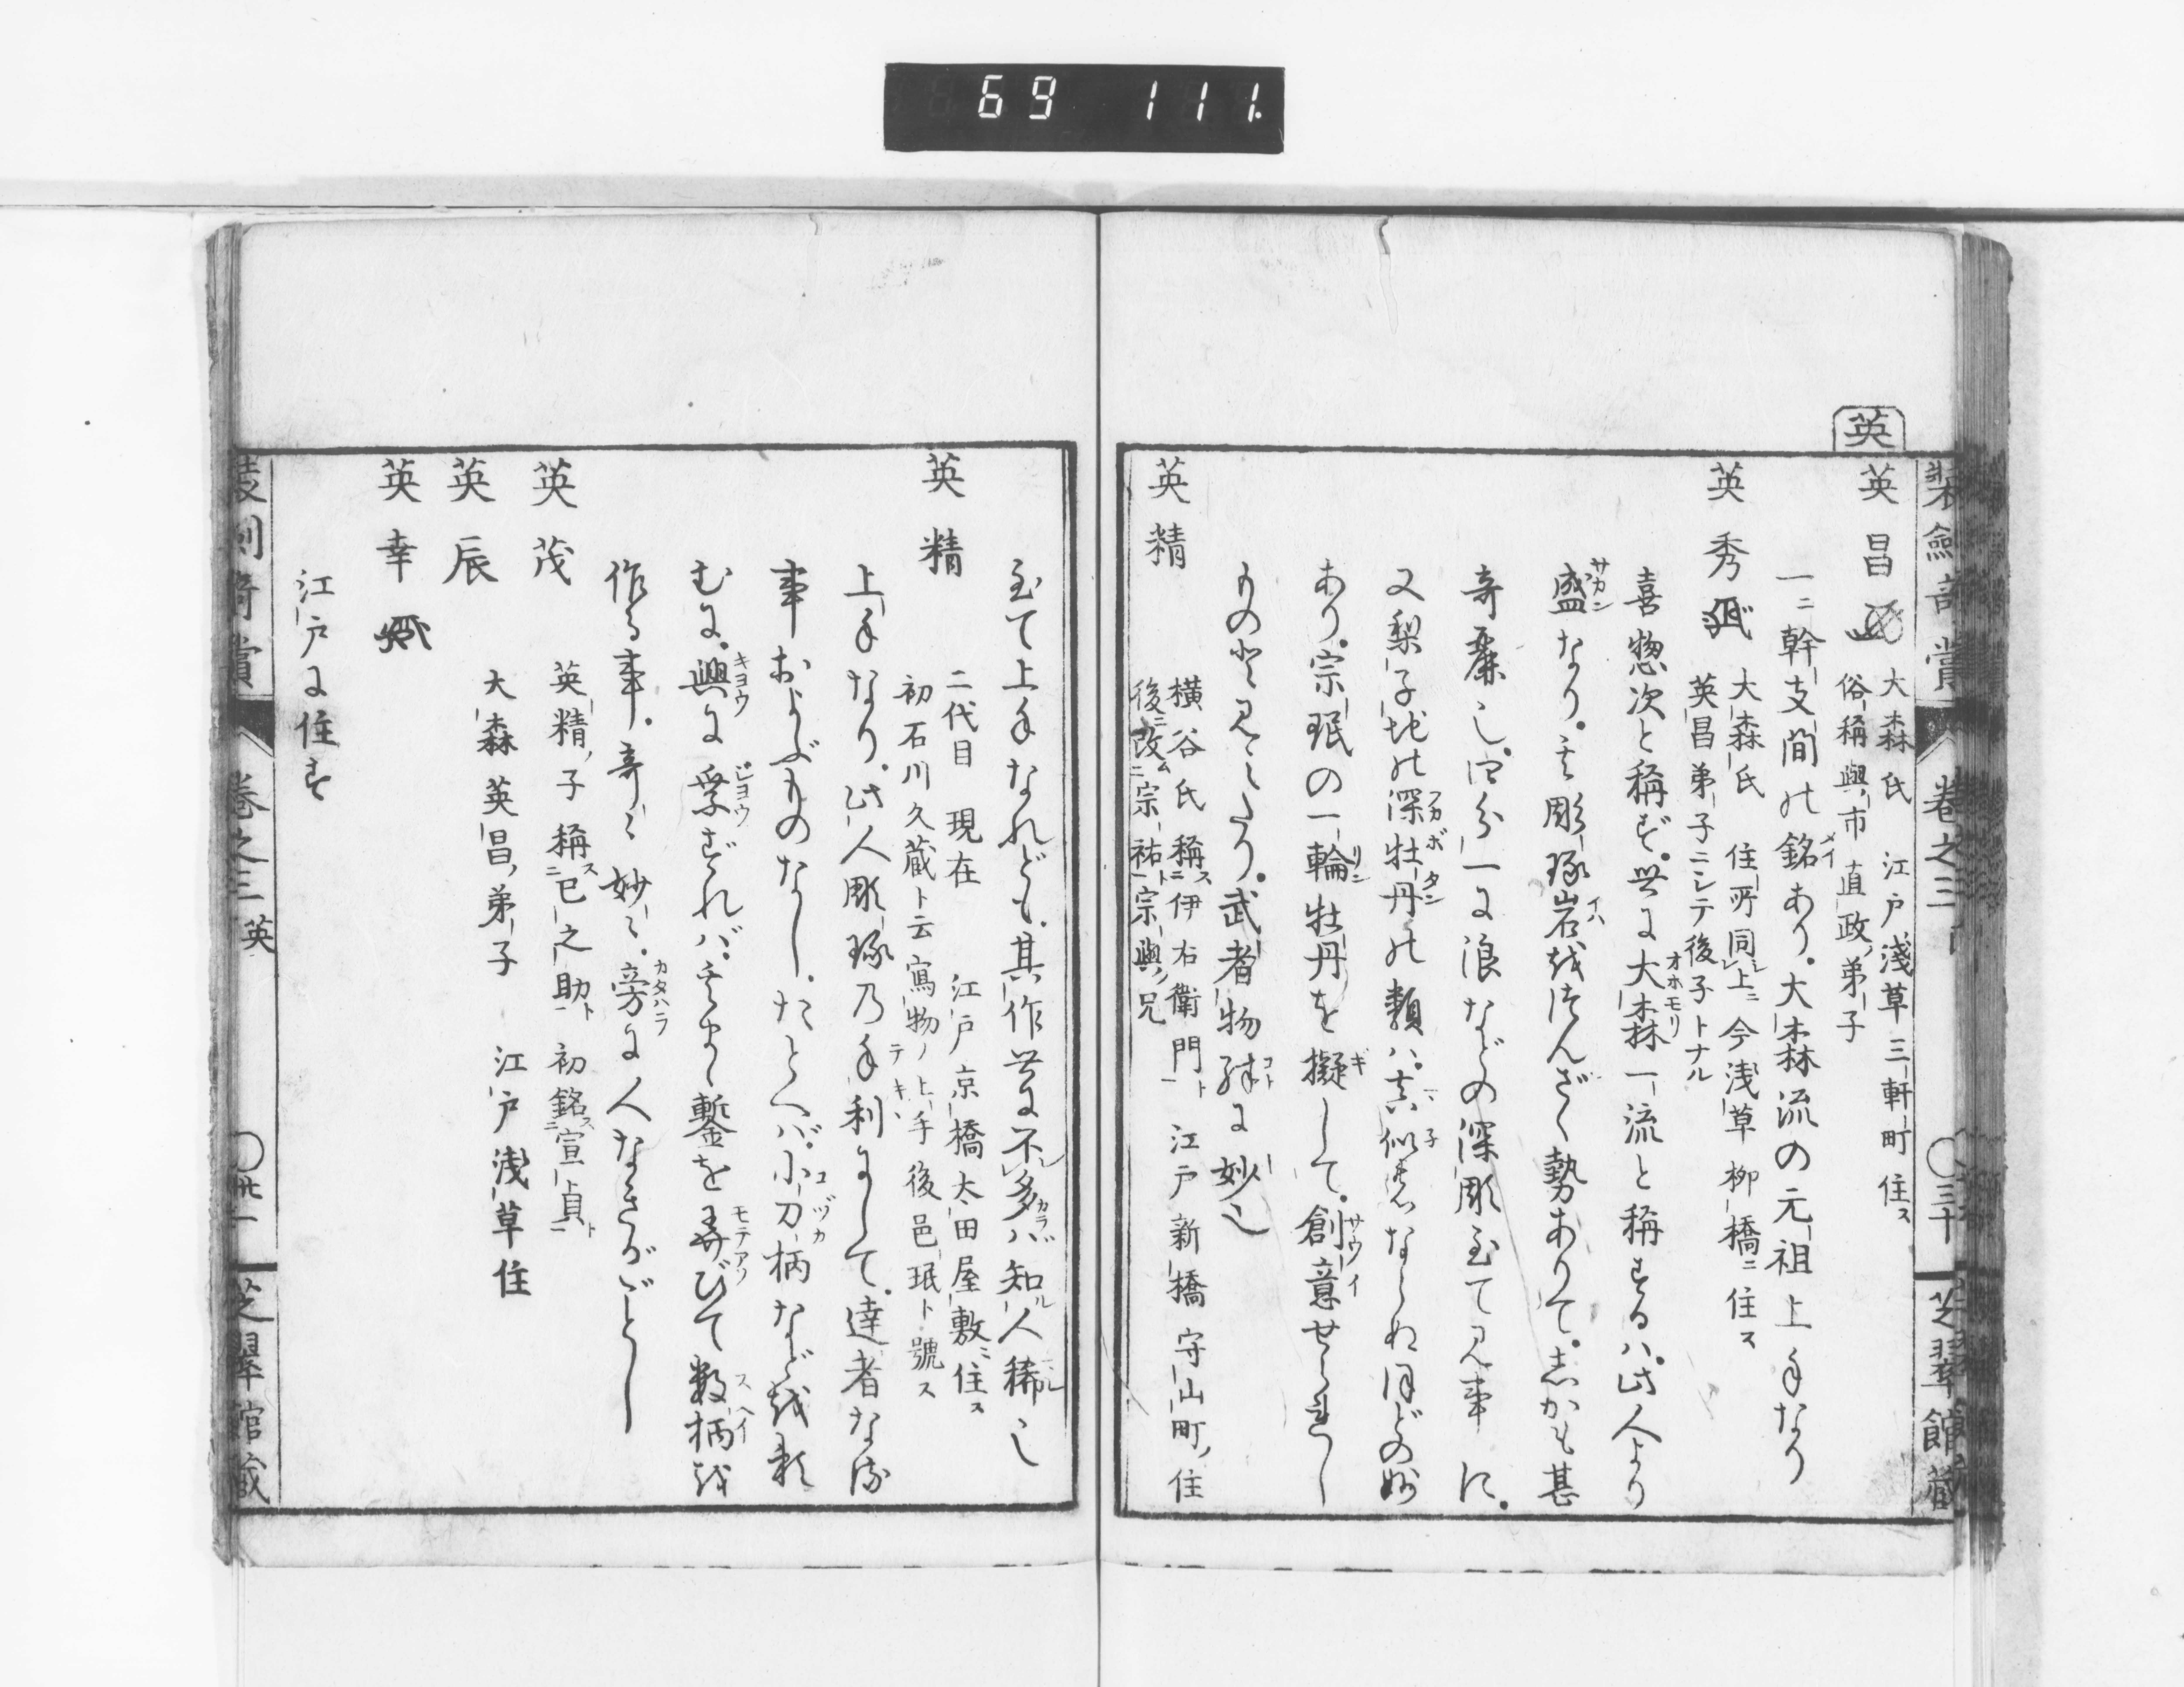 69 111.
英
装劍奇賞 巻之三 ○三十 芝翠館蔵
英昌
大森氏 江戸淺草三軒町住ス
俗稱與市直政ノ弟子
一ニ幹支間の銘あり。大森流の元祖上手なり
英秀
大森氏 住所同上ニ今浅草柳橋ニ住ス
英昌弟子ニシテ後子トナル
喜惣次と稱ず。世に大森一流と稱するハ。此人より
盛なり。其彫琢岩をたゝんざく勢ありて。しかも甚
奇麗也。四分一に浪などの深彫至て見事に。
又梨子地の深牡丹の類ハ。真似もならぬほどの妙
あり。宗珉の一輪牡丹を擬して。創意せられし
ものと見えたり。武者物殊に妙也
英精
横谷氏稱ス伊右衛門ト 江戸新橋守山町ノ住
後ニ改ム宗祐ト宗與ノ兄
至て上手なれども。其作世に不多バ知ル人稀也
英精
二代目 現在 江戸京橋太田屋敷ニ住ス
初石川久蔵ト云寫物ノ上手後邑珉ト號ス
上手なり。此人彫琢乃手利にして。達者なる
事およぶものなし。たとへバ。小刀柄などを頼
むに。興に乗ずれバ。其まゝ鏨を弄びて数柄を
作る事。奇々妙々。旁に人なきがごとし
英茂
英精ノ子稱ス巳之助ト 初銘ス宣貞ト
英辰
大森英昌ノ弟子 江戸淺草住
英幸
江戸に住す
装劍奇賞 巻之三 英 ○卅一 芝翠館蔵